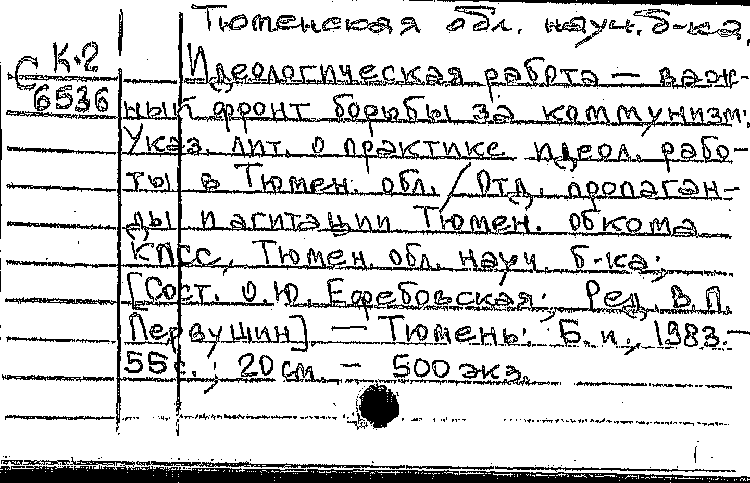 Тюменская обл. науч. б-ка.
К-2
С 6536
Идеологическая работа — важ-
ный фронт борьбы за коммунизм:
Указ. лит. о практике идеол. рабо-
ты в Тюмен. обл. / Отд. пропаган-
ды и агитации Тюмен. обкома
КПСС, Тюмен. обл. науч. б-ка;
[Сост. О.Ю. Ефребовская; Ред. В.П.
Первушин]. — Тюмень: Б. и., 1983.—
55 с.; 20 см. — 500 экз.